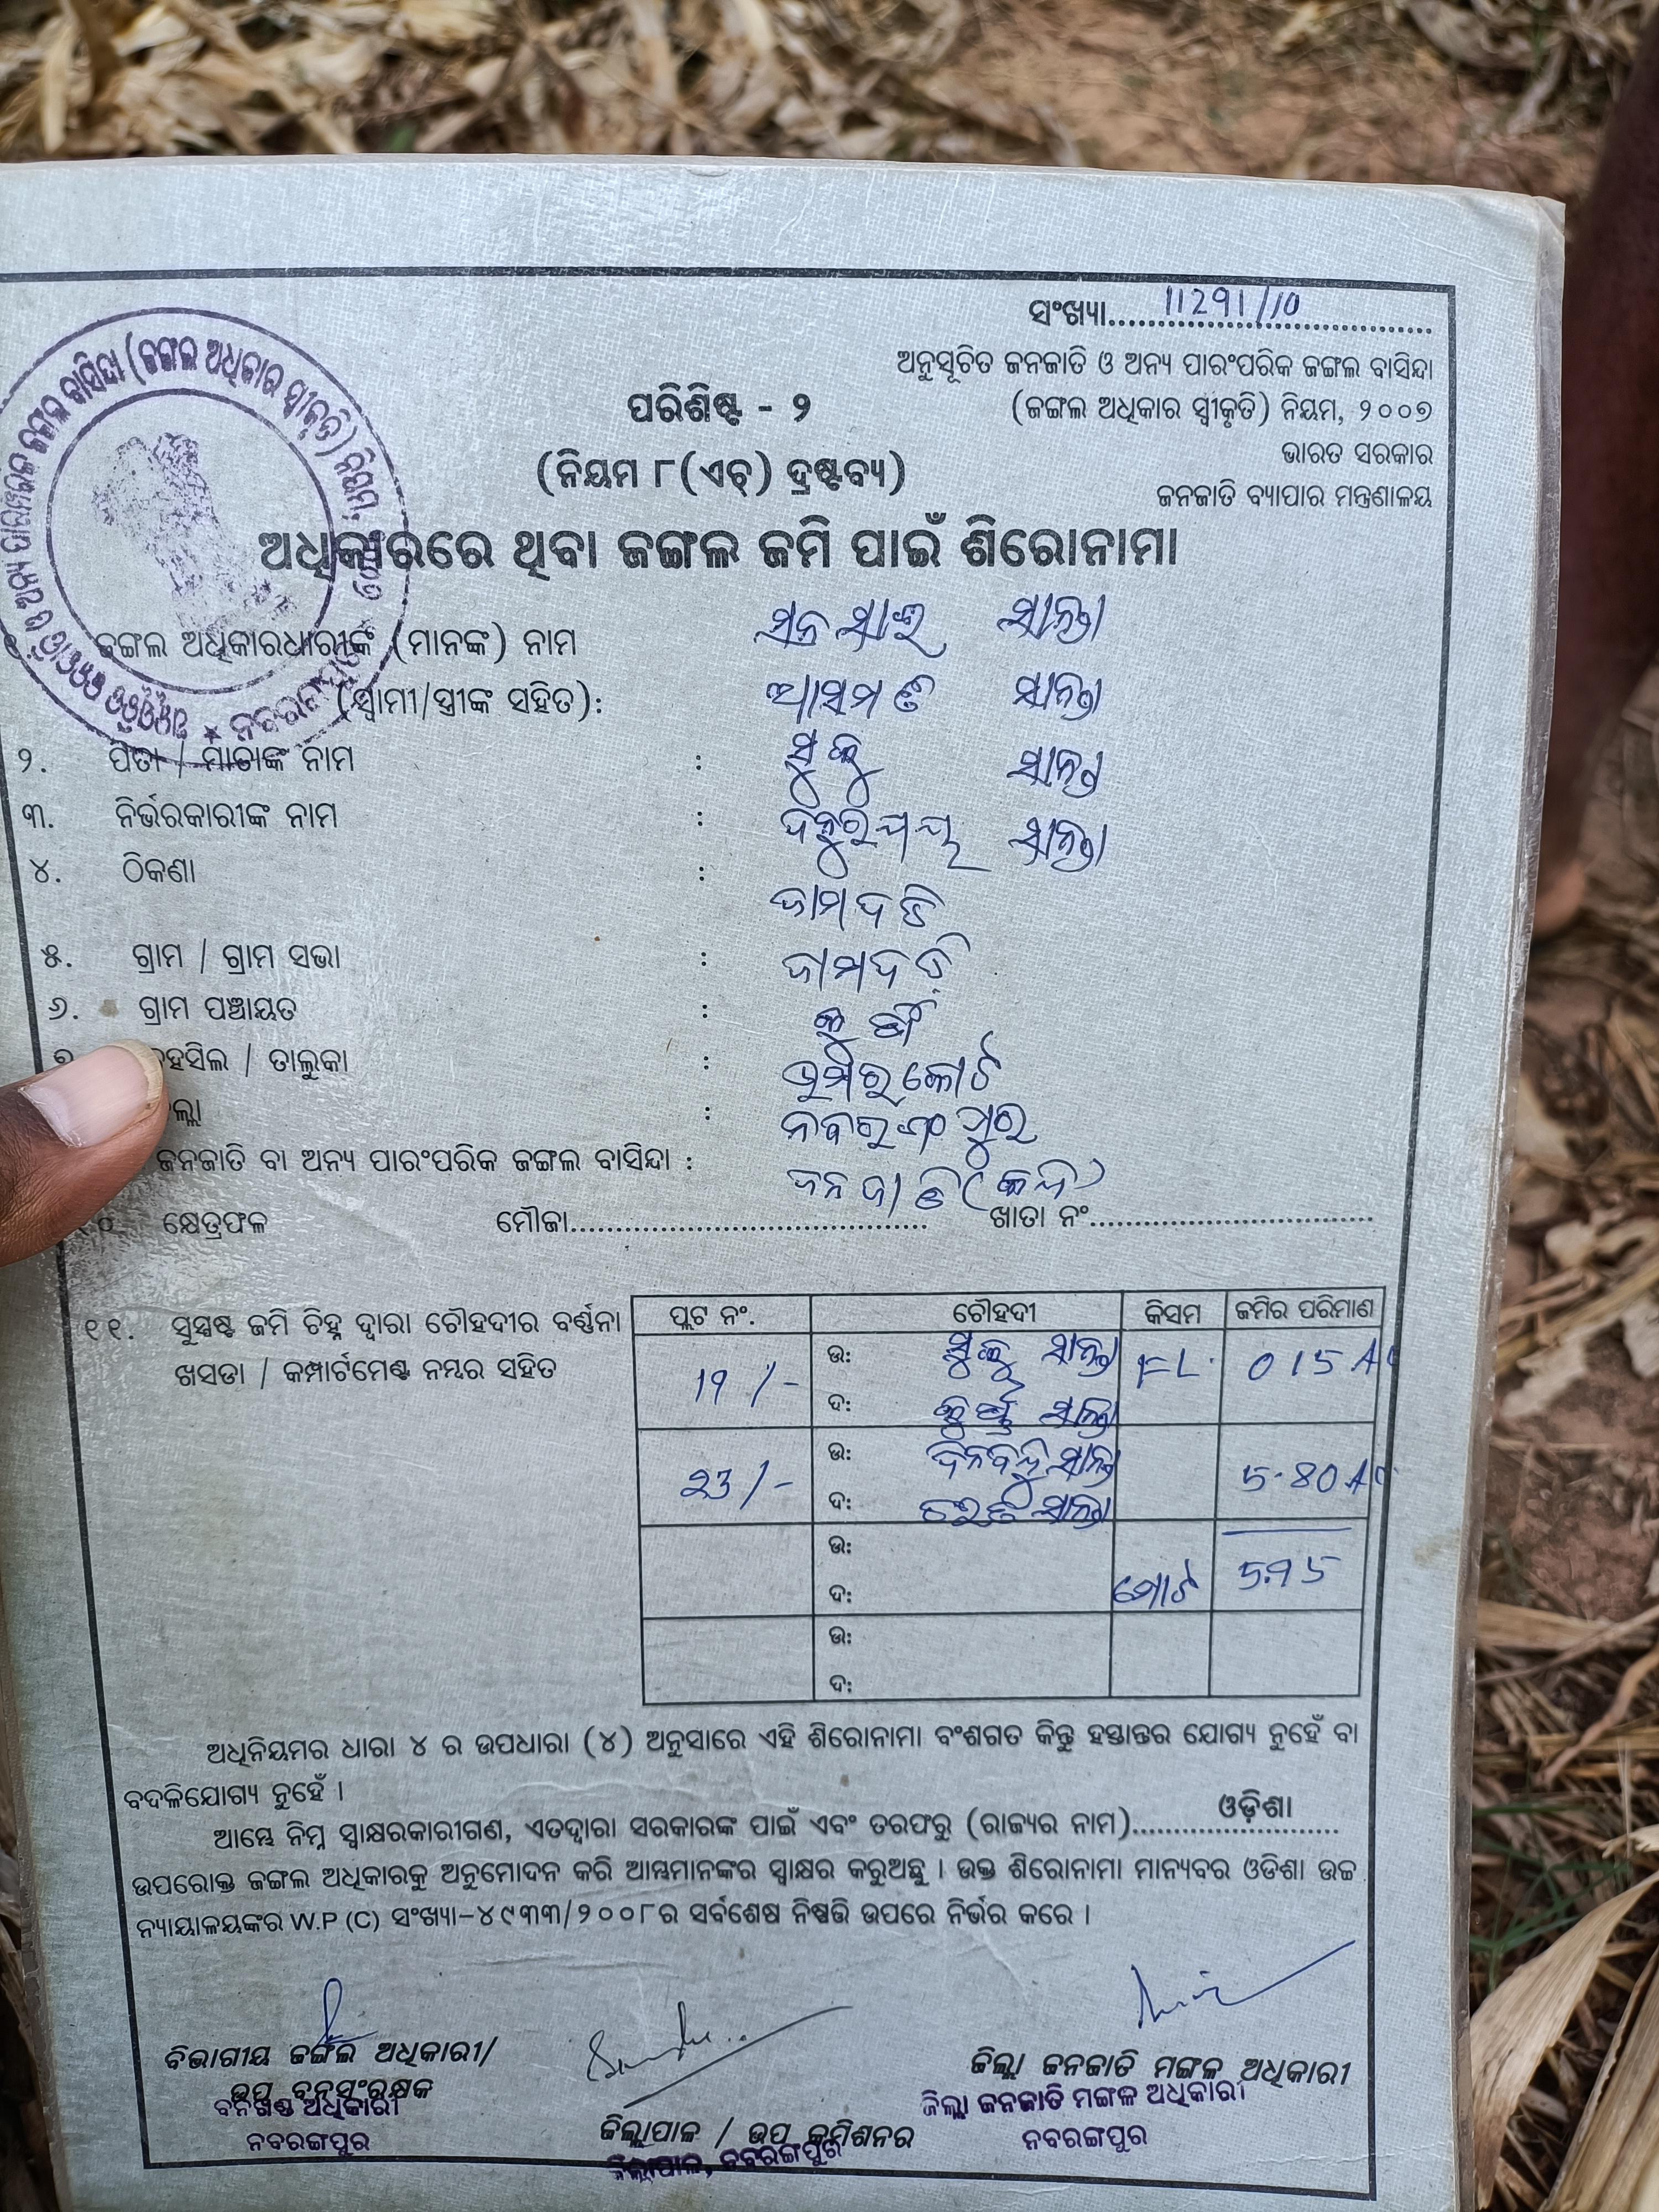 ସଂଖ୍ୟା 11291/10
ଅନୁସୂଚିତ ଜନଜାତି ଓ ଅନ୍ୟ ପାରଂପରିକ ଜଙ୍ଗଲ ବାସିନ୍ଦା
(ଜଙ୍ଗଲ ଅଧିକାର ସ୍ୱୀକୃତି) ନିୟମ, ୨୦୦୭
ଭାରତ ସରକାର
ଜନଜାତି ବ୍ୟାପାର ମନ୍ତ୍ରଣାଳୟ
ପରିଶିଷ୍ଟ - ୨
(ନିୟମ ୮(ଏଚ୍) ଦ୍ରଷ୍ଟବ୍ୟ)
ଅଧିକାରରେ ଥିବା ଜଙ୍ଗଲ ଜମି ପାଇଁ ଶିରୋନାମା
ଜଙ୍ଗଲ ଅଧିକାରଧାରୀଙ୍କ (ମାନଙ୍କ) ନାମ ସାନ୍ତା
(ସ୍ୱାମୀ/ସ୍ତ୍ରୀଙ୍କ ସହିତ): ସାନ୍ତା
୨. ପିତା / ମାତାଙ୍କ ନାମ : ସାନ୍ତା
୩. ନିର୍ଭରକାରୀଙ୍କ ନାମ : ସାନ୍ତା
୪. ଠିକଣା : ଜାମଦଡି
୫. ଗ୍ରାମ / ଗ୍ରାମ ସଭା : ଜାମଦଡି
୬. ଗ୍ରାମ ପଞ୍ଚାୟତ :
ତାଲୁକା : ଉମରକୋଟ
: ନବରଙ୍ଗପୁର
ଜନଜାତି ବା ଅନ୍ୟ ପାରଂପରିକ ଜଙ୍ଗଲ ବାସିନ୍ଦା : ଜନଜାତି
କ୍ଷେତ୍ରଫଳ ମୌଜା ଖାତା ନଂ
୧୧. ସୁସ୍ପଷ୍ଟ ଜମି ଚିହ୍ନ ଦ୍ୱାରା ଚୌହଦୀର ବର୍ଣ୍ଣନା
ଖସଡା / କମ୍ପାର୍ଟମେଣ୍ଟ ନମ୍ଭର ସହିତ
ପ୍ଲଟ ନଂ. ଚୌହଦୀ କିସମ ଜମିର ପରିମାଣ
19/- ଉ: ସାନ୍ତା FL. 015 AC
ଦ: ସାନ୍ତା
23/- ଉ: ଦିନବନ୍ଧୁ ସାନ୍ତା 5.80 AC
ଦ: ସାନ୍ତା
ଉ: ମୋଟ 5.95
ଦ:
ଉ:
ଦ:
ଅଧିନିୟମର ଧାରା ୪ ର ଉପଧାରା (୪) ଅନୁସାରେ ଏହି ଶିରୋନାମା ବଂଶଗତ କିନ୍ତୁ ହସ୍ତାନ୍ତର ଯୋଗ୍ୟ ନୁହେଁ ବା
ବଦଳିଯୋଗ୍ୟ ନୁହେଁ ।
ଆମ୍ଭେ ନିମ୍ନ ସ୍ୱାକ୍ଷରକାରୀଗଣ, ଏତଦ୍ୱାରା ସରକାରଙ୍କ ପାଇଁ ଏବଂ ତରଫରୁ (ରାଜ୍ୟର ନାମ) ଓଡ଼ିଶା
ଉପରୋକ୍ତ ଜଙ୍ଗଲ ଅଧିକାରକୁ ଅନୁମୋଦନ କରି ଆମ୍ଭମାନଙ୍କର ସ୍ୱାକ୍ଷର କରୁଅଛୁ । ଉକ୍ତ ଶିରୋନାମା ମାନ୍ୟବର ଓଡିଶା ଉଚ୍ଚ
ନ୍ୟାୟାଳୟଙ୍କର W.P (C) ସଂଖ୍ୟା-୪୯୩୩/୨୦୦୮ର ସର୍ବଶେଷ ନିଷ୍ପତ୍ତି ଉପରେ ନିର୍ଭର କରେ ।
ବିଭାଗୀୟ ଜଙ୍ଗଲ ଅଧିକାରୀ/
ଉପ ବନସଂରକ୍ଷକ
ବନଖଣ୍ଡ ଅଧିକାରୀ
ନବରଙ୍ଗପୁର
ଜିଲ୍ଲାପାଳ / ଉପ କମିଶନର
ଜିଲ୍ଲାପାଳ, ନବରଙ୍ଗପୁର
ଜିଲ୍ଲା ଜନଜାତି ମଙ୍ଗଳ ଅଧିକାରୀ
ଜିଲ୍ଲା ଜନଜାତି ମଙ୍ଗଳ ଅଧିକାରୀ
ନବରଙ୍ଗପୁର